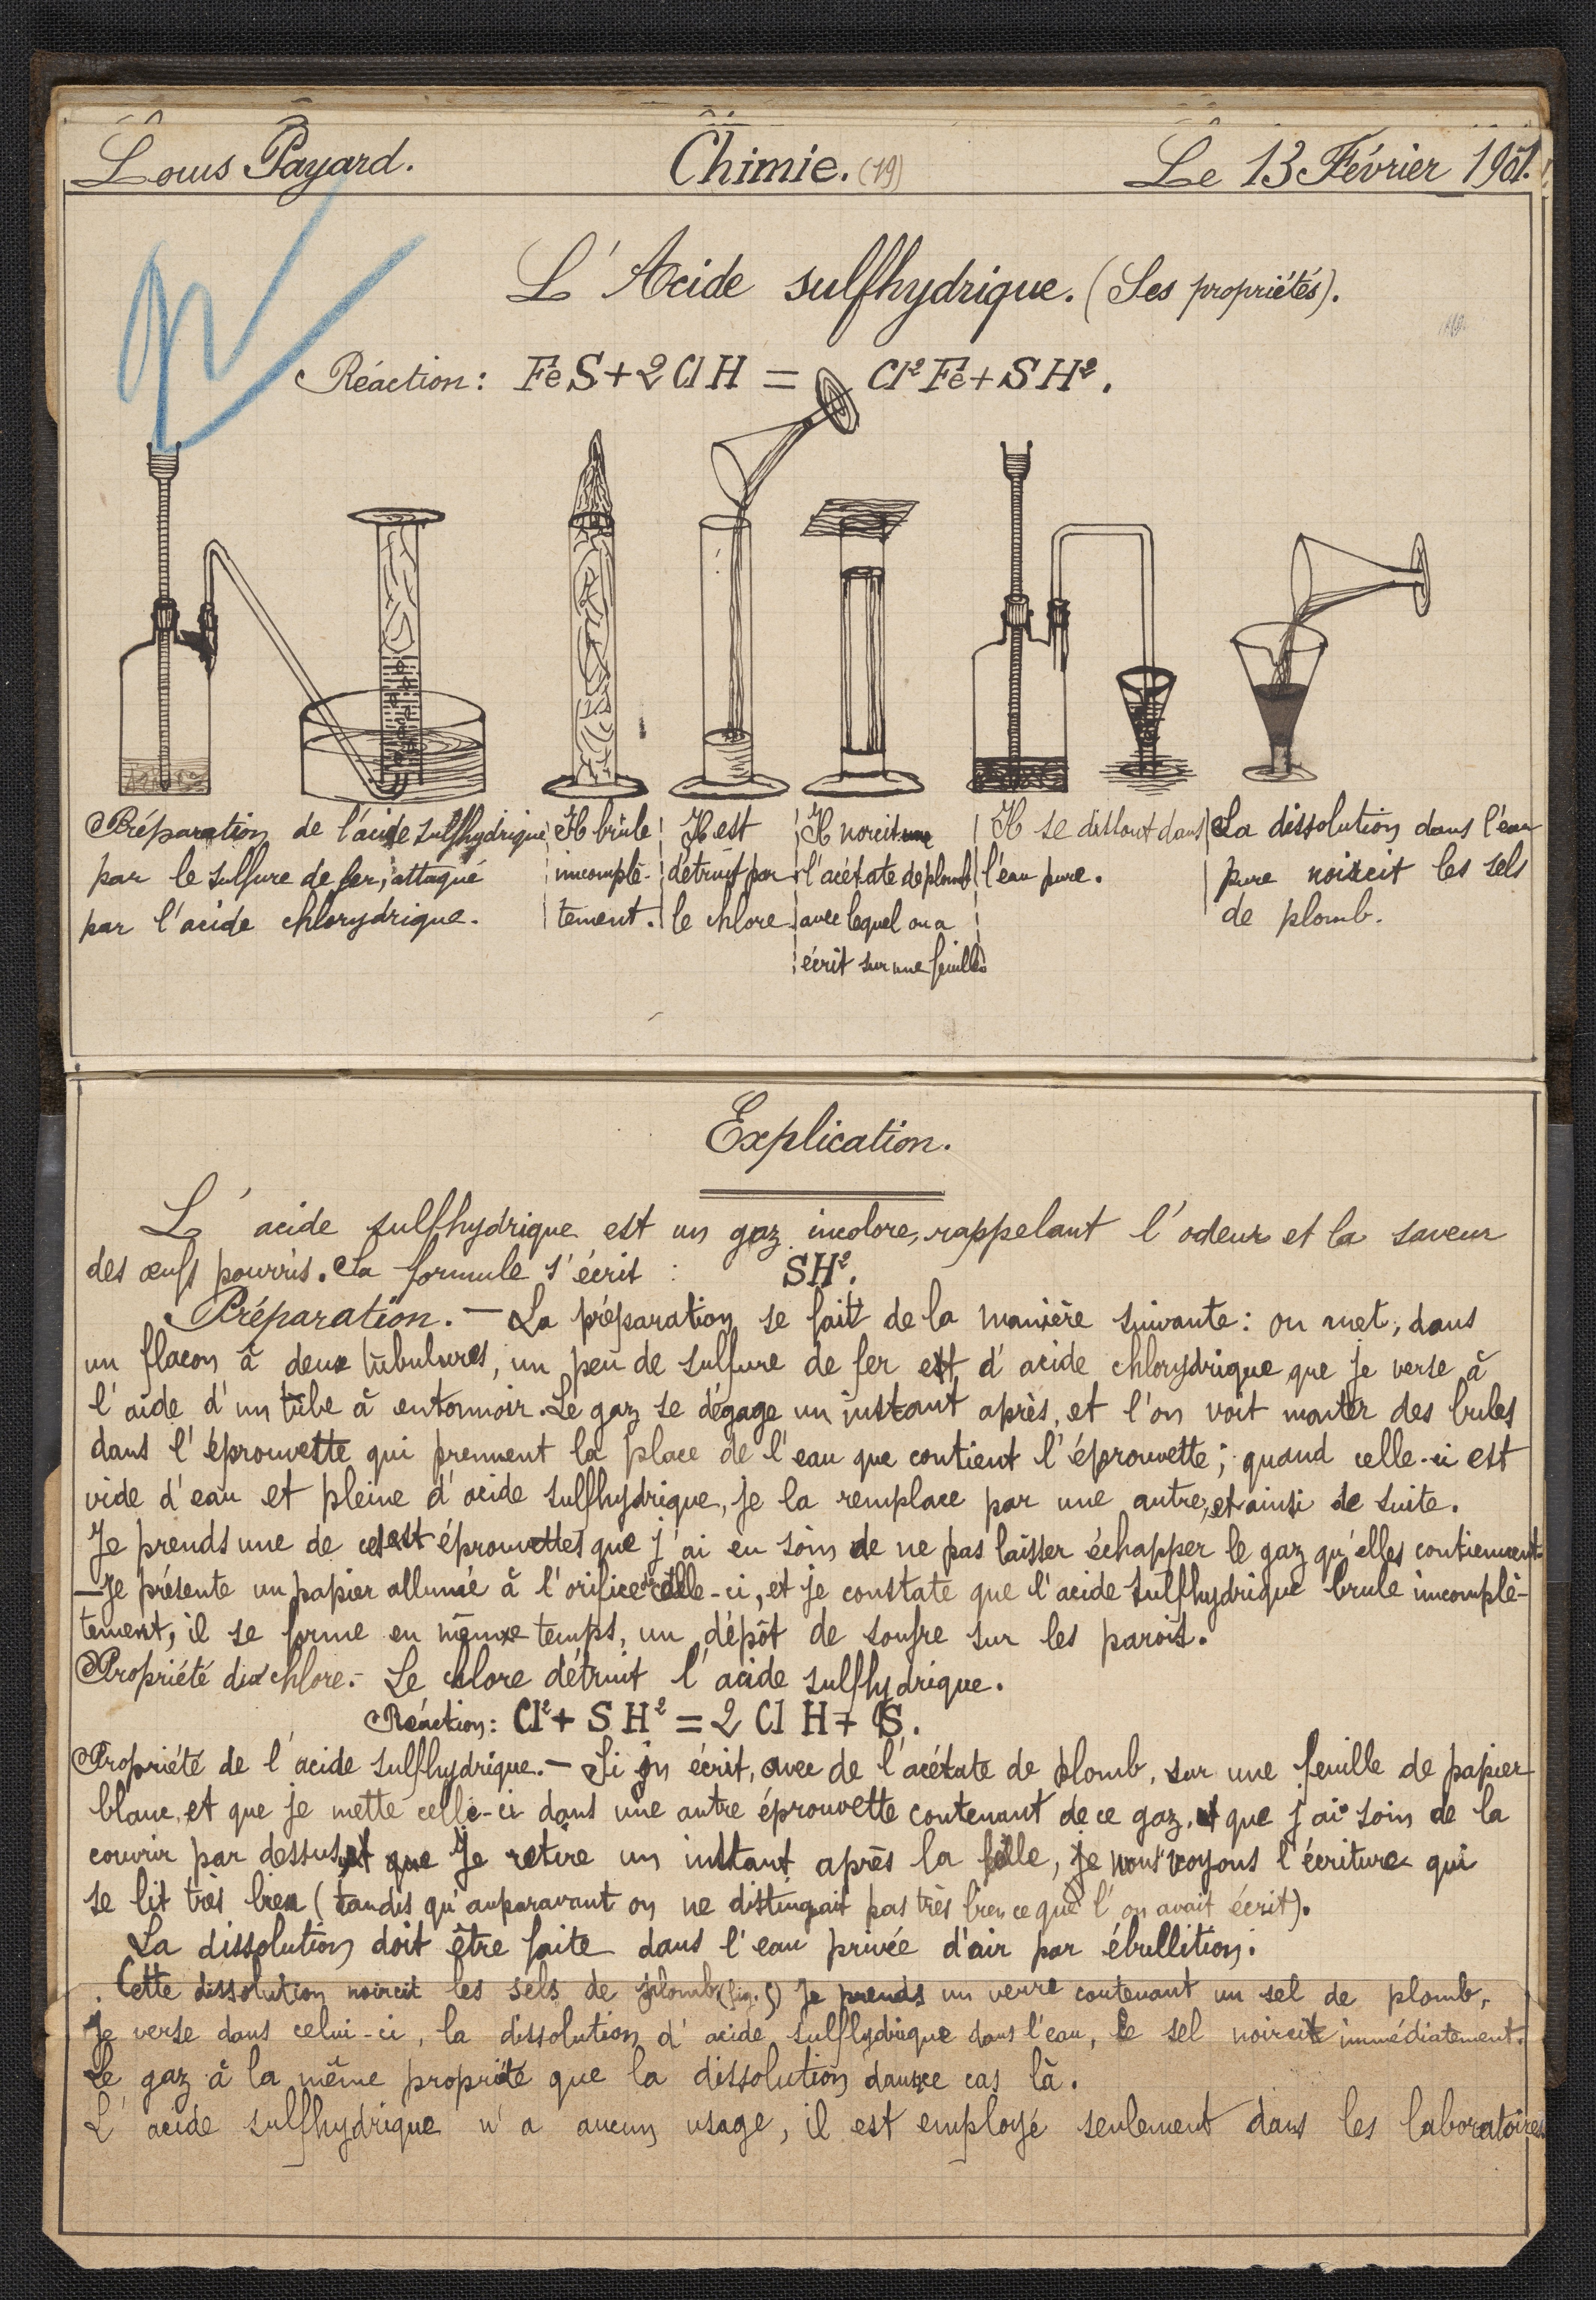 Louis Payard. Chimie. (19) Le 13 Février 1901.
L'Acide sulfhydrique. (Ses propriétés).
Réaction: FeS + 2 Cl H = Cl² Fe + SH².
Préparation de l'acide sulfhydrique
par le sulfure de fer, attaqué
par l'acide chlorydrique.
Il brûle
incomplè-
tement.
Il est
détruit par
le chlore
Il noircit
l'acétate de plomb
avec lequel on a
écrit sur une feuille
Il se dissout dans
l'eau pure.
La dissolution dans l'eau
pure noircit les sels
de plomb.
Explication.
L'acide sulfhydrique est un gaz incolore, rappelant l'odeur et la saveur
des œufs pourris. Sa formule s'écrit : SH².
Préparation. — La préparation se fait de la manière suivante: on met, dans
un flacon à deux tubulures, un peu de sulfure de fer et d'acide chlorydrique que je verse à
l'aide d'un tube à entonnoir. Le gaz se dégage un instant après, et l'on voit monter des bules
dans l'éprouvette qui prennent la place de l'eau que contient l'éprouvette; quand celle-ci est
vide d'eau et pleine d'acide sulfhydrique, je la remplace par une autre, et ainsi de suite.
Je prends une de ces éprouvettes que j'ai eu soin de ne pas laisser échapper le gaz qu'elles contiennent
— Je présente un papier allumé à l'orifice de celle-ci, et je constate que l'acide sulfhydrique brule incomplè-
tement, il se forme en même temps, un dépôt de soufre sur les parois.
Propriété du chlore. - Le chlore détruit l'acide sulfhydrique.
Réaction: Cl² + S H² = 2 Cl H + S.
Propriété de l'acide sulfhydrique. — Si on écrit, avec de l'acétate de plomb, sur une feuille de papier
blanc, et que je mette celle-ci dans une autre éprouvette contenant de ce gaz, et que j'ai soin de la
couvrir par dessus, et que je retire un instant après la feuille, nous voyons l'écriture qui
se lit très bien (tandis qu'auparavant on ne distinguait pas très bien ce que l'on avait écrit).
La dissolution doit être faite dans l'eau privée d'air par ébullition.
Cette dissolution noircit les sels de plomb (fig. 5) Je prends un verre contenant un sel de plomb,
Je verse dans celui-ci, la dissolution d'acide sulfhydrique dans l'eau, le sel noircit immédiatement.
Le gaz à la même propriété que la dissolution dans ce cas là.
L'acide sulfhydrique n'a aucun usage, il est employé seulement dans les laboratoires